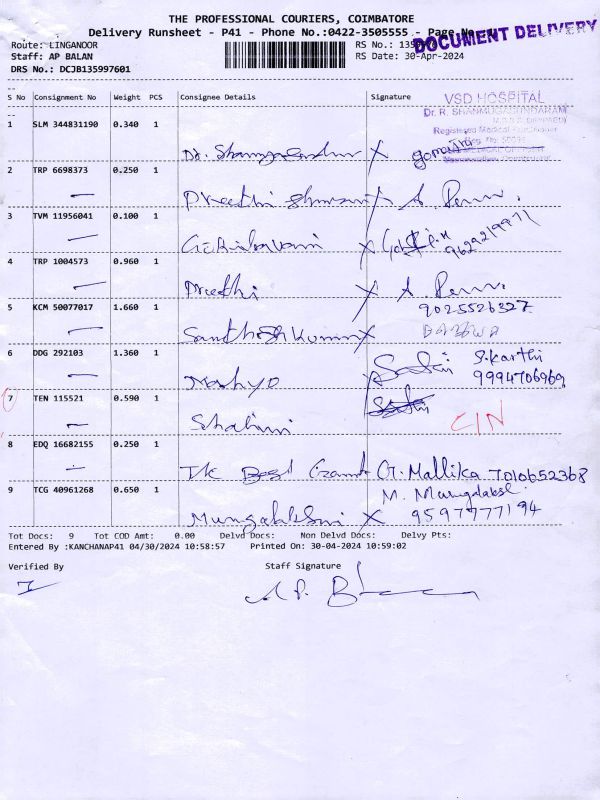 THE PROFESSIONAL COURIERS, COIMBATORE
Delivery Runsheet - P41 - Phone No.:0422-3505555 - Page No
DOCUMENT DELIVERY
Route: LINGANOOR RS No.:
Staff: AP BALAN RS Date: 30-Apr-2024
DRS No.: DCJB135997601
S No Consignment No Weight PCS Consignee Details Signature
VSD HOSPITAL
Dr. R. SHANMUGASUNDARAM
Registered Medical Practitioner
1 SLM 344831190 0.340 1
Dr. X
2 TRP 6698373 0.250 1
Preethi X
3 TVM 11956041 0.100 1
X 9629219971
4 TRP 1004573 0.960 1
Preethi X
9025526327
5 KCM 50077017 1.660 1
Santhosh Kumar X
6 DDG 292103 1.360 1
S.Karthi
9994706969
7 TEN 115521 0.590 1
Shalini
C/N
8 EDQ 16682155 0.250 1
The G. Mallika 7010652368
9 TCG 40961268 0.650 1
M.
X 9597977194
Tot Docs: 9 Tot COD Amt: 0.00 Delvd Docs: Non Delvd Docs: Delvy Pts:
Entered By :KANCHANAP41 04/30/2024 10:58:57 Printed On: 30-04-2024 10:59:02
Verified By Staff Signature